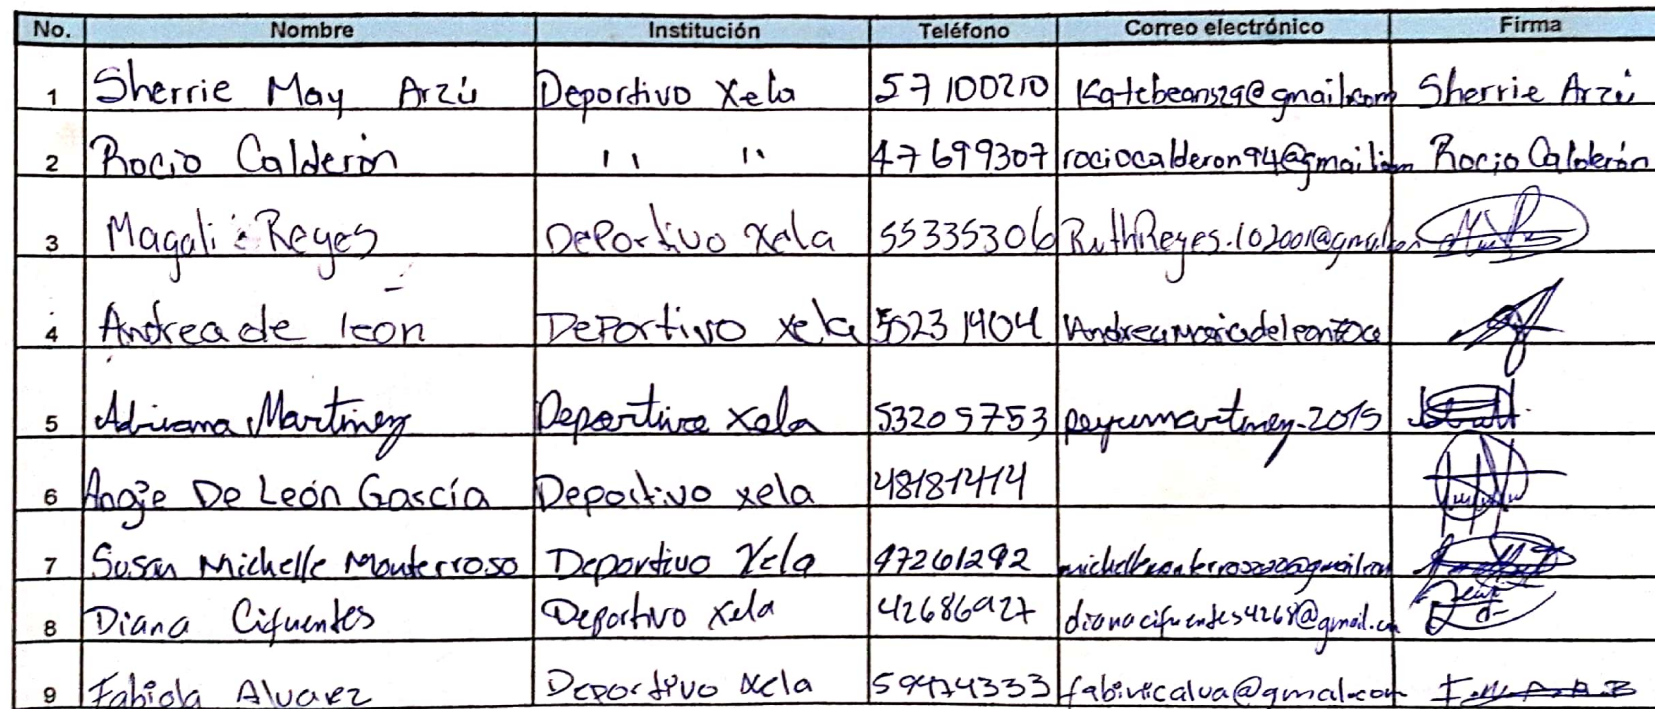 No. Nombre Institución Teléfono Correo electrónico Firma
1 Sherrie May Arzú Deportivo Xela 57100210 Katebeans29@gmail.com Sherrie Arzú
2 Rocio Calderón '' '' 47699307 rociocalderon94@gmail.com Rocio Calderón
3 Magali Reyes Deportivo Xela 55335306 RuthReyes.102001@gmail.com
4 Andrea de leon Deportivo xela 50231404
5 Adriana Martinez Deportivo xela 53205753
6 Angie De León García Deportivo xela 48181414
7 Susan Michelle Monterroso Deportivo Xela 47261292
8 Diana Cifuentes Deportivo xela 42686927 dianacifuentes4268@gmail.com
9 Fabiola Alvarez Deportivo xela 59474333 fabivicalva@gmal.com